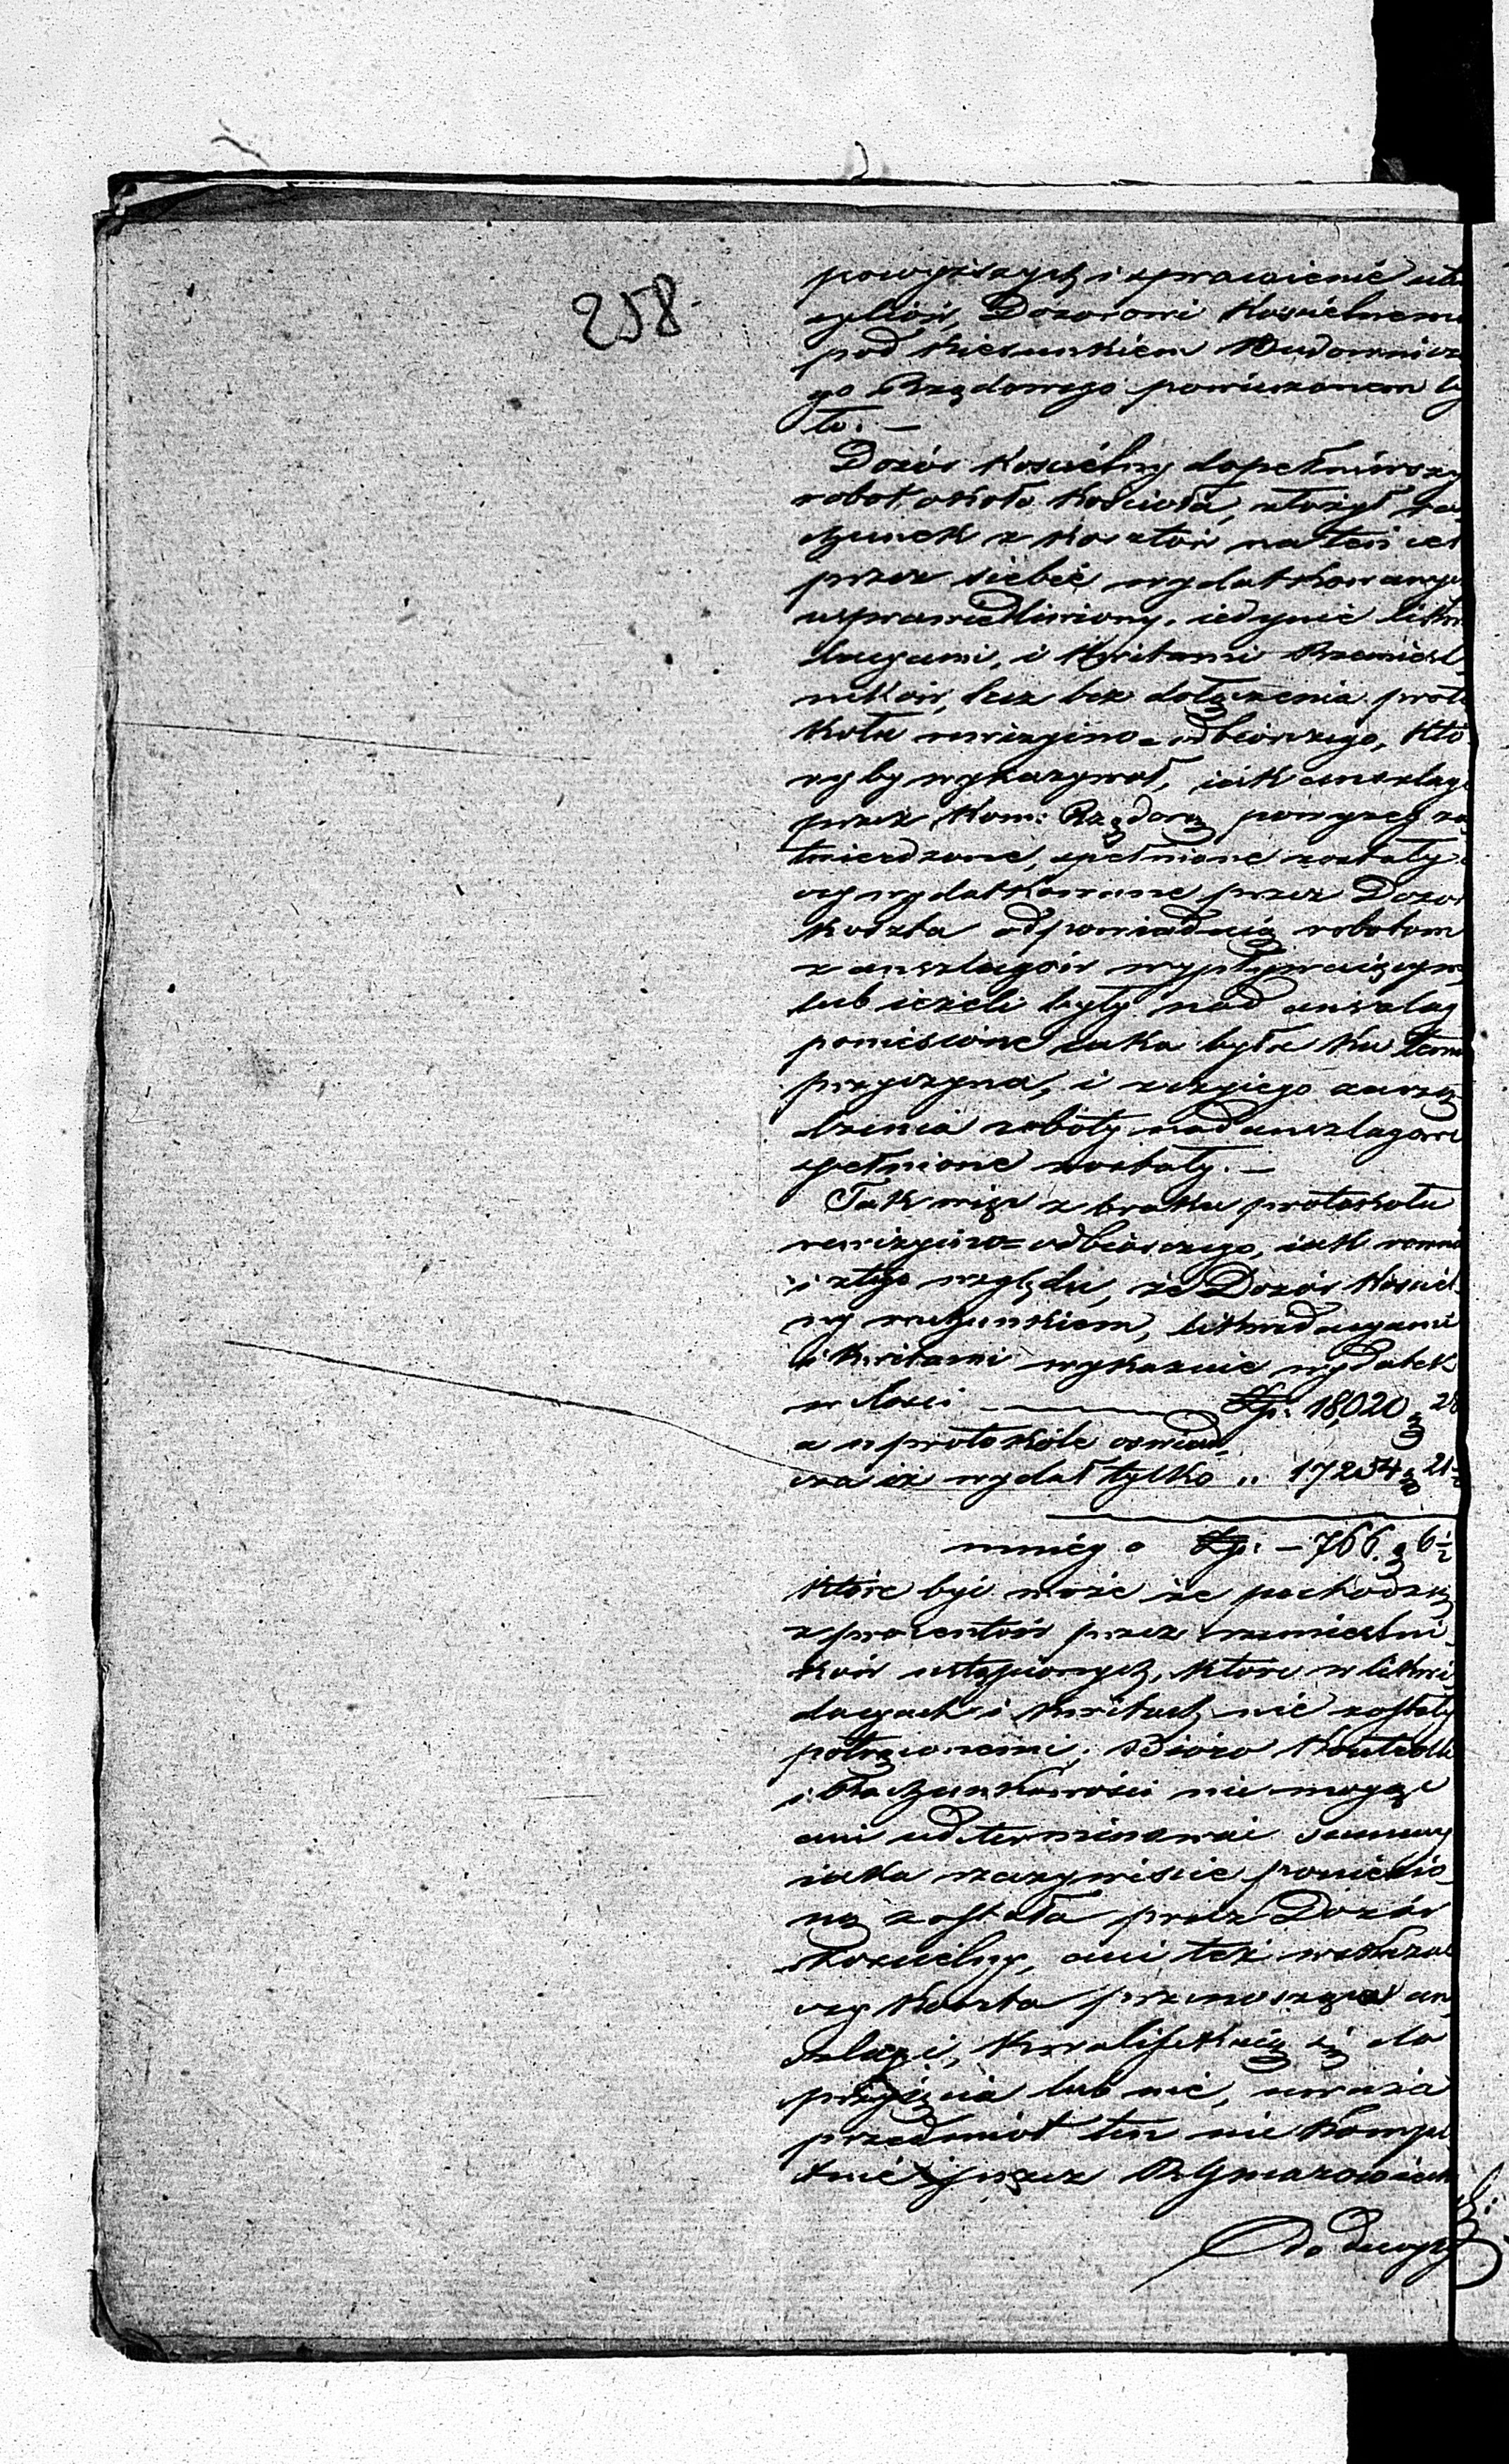 258.
powyższych i sprawienie uten
syliów, Dozorowi Kościelnemu
pod kierunkiem Budownicze
go Rządowego powierzonem by
ło. —
Dozór Kościelny dopełniwszy
robot około Kościoła, złożył ra
chunek z kosztów na ten cel
przez siebie wydatkowanych
usprawiedliwiony, iedynie likwi
dacyami, i Kwitami Rzemieśl
ników, lecz bez dołączenia proto
kołu rewizyino-odbiorczego, któ
ryby wykazywał, iak anszlagi
przez Kom: Rządową powyżey za
twierdzone, spełnione zostały i
czy wydatkowane przez Dozor
koszta odpowiadaią robotom
z anszlagów wypływaiącym,
lub ieżeli były nad anszlag
poniesione iaka była ku temu
przyczyna, i z czyiego zarzą
dzenia roboty nadanszlagowe
spełnione zostały. —
Tak więc z braku protokołu
rewizyino-odbiorczego, iak rowni
i z tego względu, że Dozór Kościel
ny rachunkiem, likwidacyami
i kwitami wykazuie wydatek
w ilości — Złp. 18,020 g 28
a w protokóle oswiad
cza iż wydał tylko „ 17254 g 21½
mniey o Złp. — 766. g 6½
które być może że pochodzą
z procentów przez rzemieślni
ków ustąpionych, które w likwi
dacyach i kwitach nie zostały
potrąconemi, Bióro Kontrolli
i Rachunkowości nie mogąc
ani udeterminować summy
iaka rzeczywiście poniesio
ną została przez Dozór
Kościelny, ani też wskazać
czy koszta przenoszące an
szlagi, kwalifikuią się do
przyięcia lub nie, uważa
przedmiot ten nie komple
tnie przez